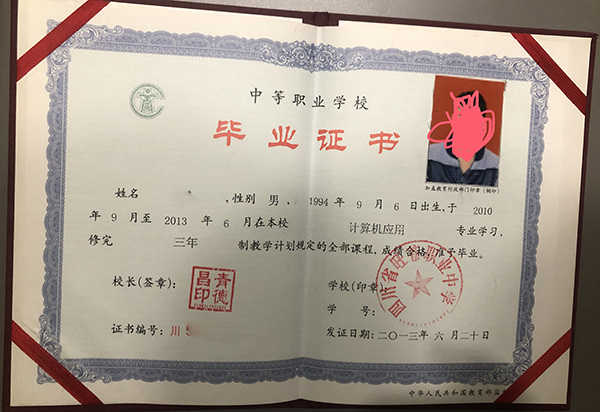 中等职业学校
毕业证书
加盖教育行政部门印章(钢印)
姓名 ,性别 男 , 1994 年 9 月 6 日出生,于 2010
年 9 月至 2013 年 6 月在本校 计算机应用 专业学习,
修完 三年 制教学计划规定的全部课程,成绩合格,准予毕业。
校长(签章):
青德昌印
学校(印章
四川省 职业中学
学 号:
证书编号: 川
发证日期:二〇一三年 六 月二十日
中华人民共和国教育部监